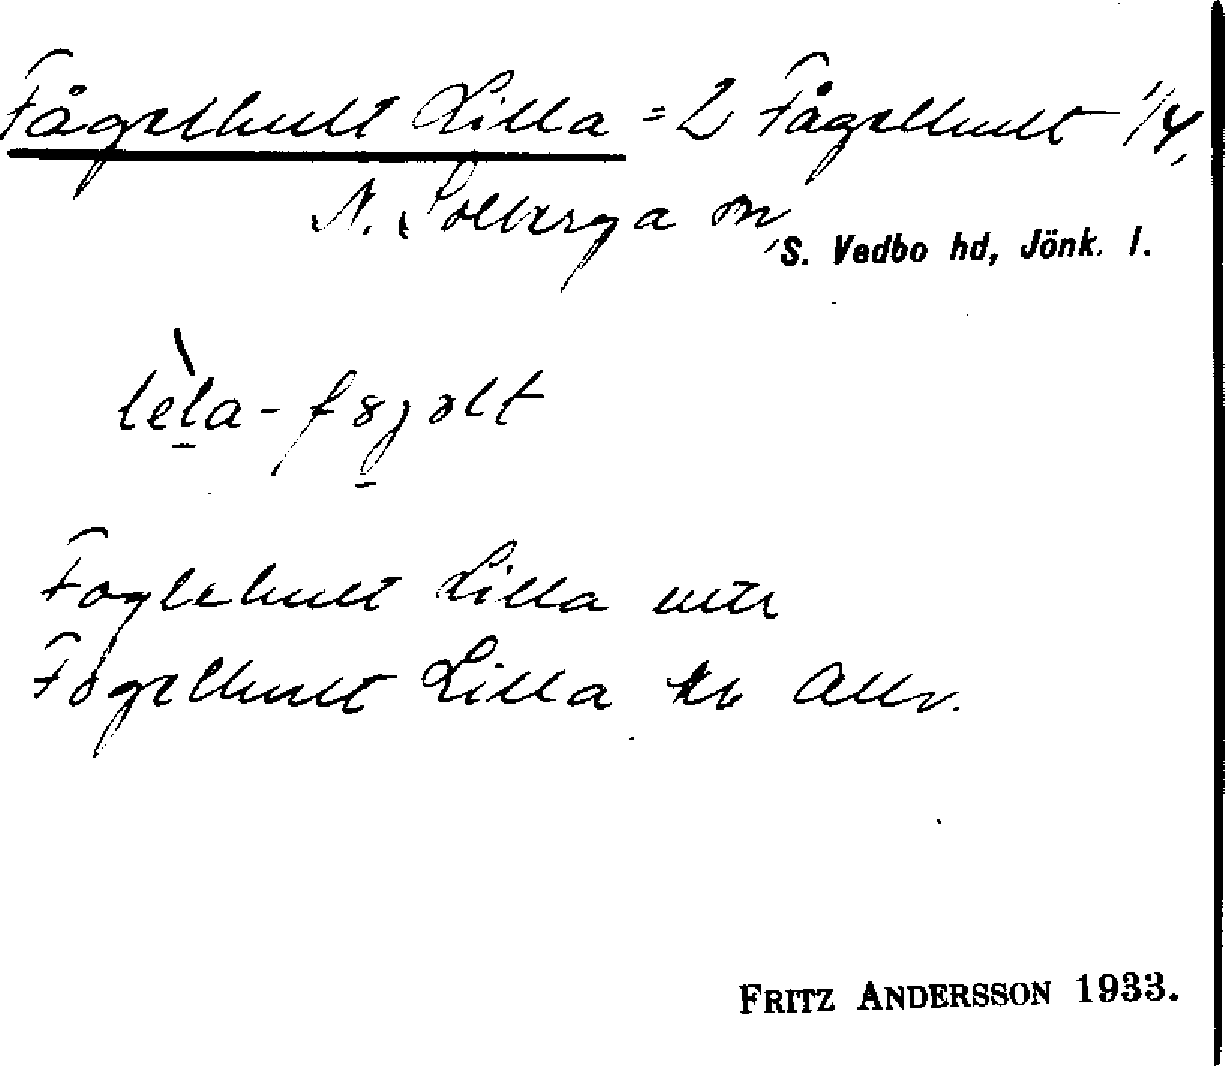 Fågelhult Lilla = 2 Fågelhult 1/4,
N. Solberga sn,
S. Vedbo hd, Jönk. l.
Foglehult Lilla
Fogelhult Lilla
FRITZ ANDERSSON 1933.